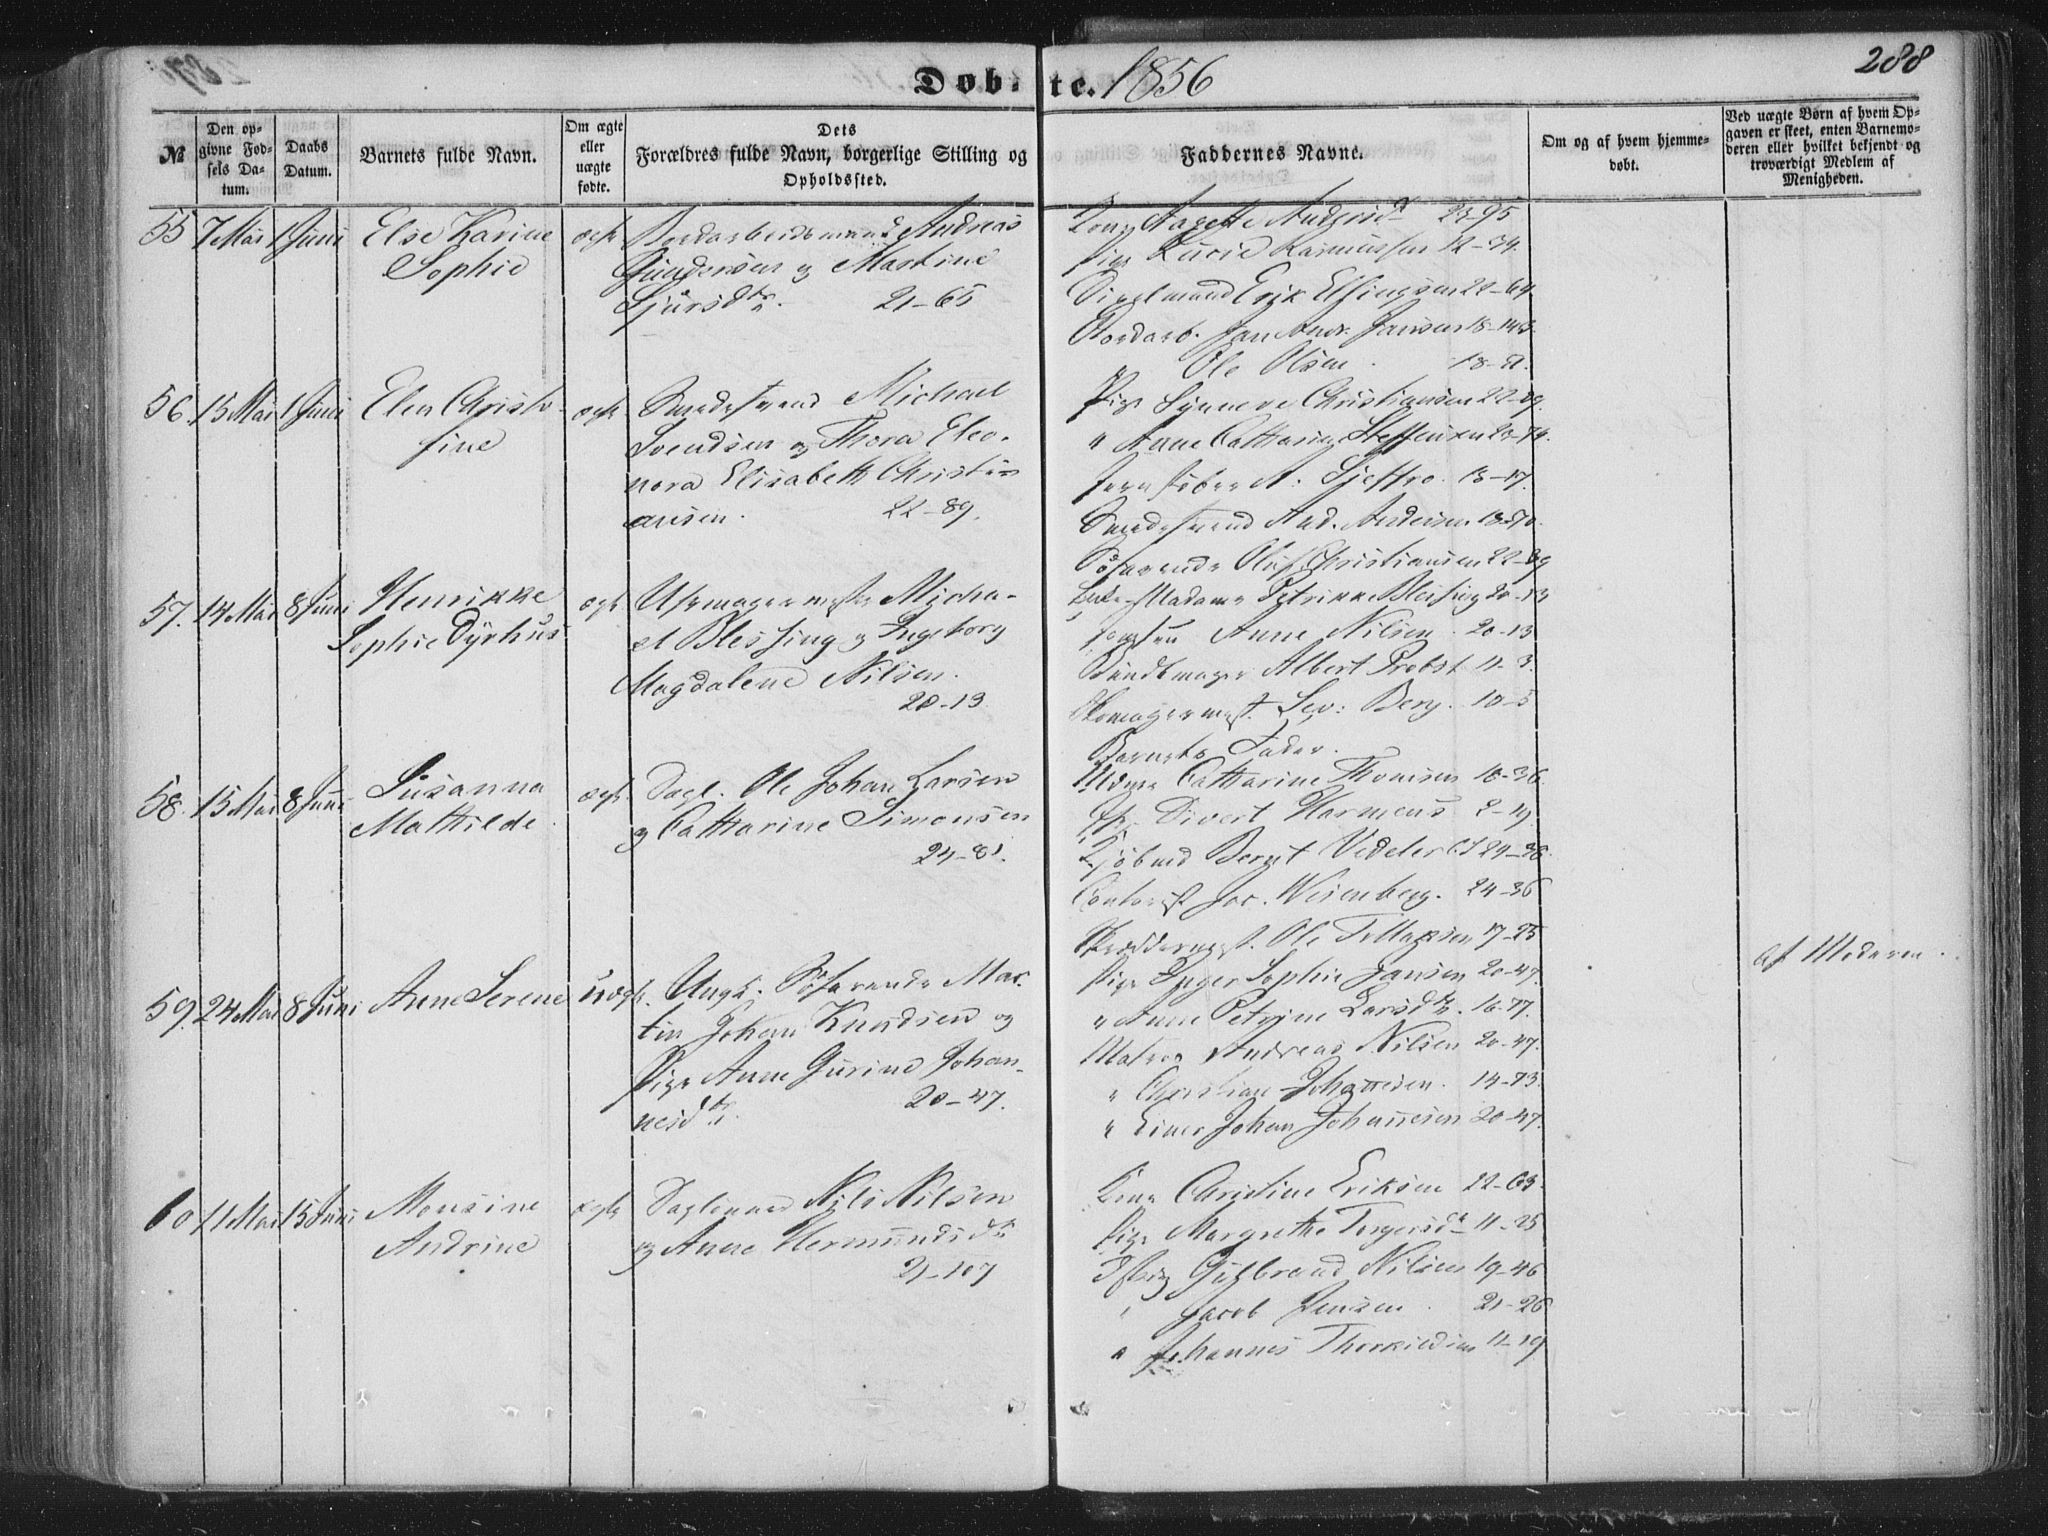 Døbte. 1856
288
№
Den opgivne Fødsels Datum.
Daabs Datum.
Barnets fulde Navn.
Om ægte eller uægte fødte.
Dets Forældres fulde Navn, borgerlige Stilling og Opholdssted.
Faddernes Navne.
Om og af hvem hjemmedøbt.
Ved uægte Børn af hvem Opgaven er skeet, enten Barnemoderen eller hvilket bekjendt og troværdigt Medlem af Menigheden.
55 7 Mai 1 Juni Else Karine
Sophie
ægte
Bordarbeidsmand Andreas
Gundersen og Martine
Sjursdtr. 21–65
Pige Lucie Rasmussen 12–34.
Erik Elfingsen 22–64
Bordarb. Jan Andr. Jansen 18–143
Ole Olsen.
56. 15 Mai 1 Juni Elen Christo-
fine
ægte
Smedesvend Michael
Svendsen og Thora Eleo-
nora Elisabeth Christi-
ansen. 22–89.
Pige Synneve Christiansen 22–89.
" Anne Catharine Steffensen
13–17.
Smedesvend And. Andersen
Søfarende Oluf Christiansen 22–89
57. 14 Mai 8 Juni Henrikke
Sophie Dyrhus
ægte
Uhrmagermester Micha-
el Blessing og Ingeborg
Magdalene Nilsen.
20–13
Madame Petrikke Blessing 20–13
Anne Nilsen. 20–13
Bundtmager Albert Probst 11–3.
Skomagermest. Sev: Berg. 10–5
Barnets Fader.
58. 15 Mai 8 Juni Susanna
Mathilde
ægte
Dagl. Ole Johan Larsen
og Catharine Simonsen
24–81.
Mdme Catharine Thomsen 18–36.
Sivert Harmens 2–19
Kjøbmd Bernt Vedeler 24–38
Contorist Jac. Wesenberg. 24–36
Skræddermest. Ole Tellefsen 17–25
59. 24 Mai 8 Juni Anne Serene
uægte
Ungk. Søfarende Mar-
tin Johan Knudsen og
Pige Anne Gurine Johan-
nesdtr. 20–47.
Pige Inger Sophie Jansen 20–47.
" Anne Petrine Larsdtr. 16–77.
Matros Andreas Nilsen 20–47.
" Christian Johannesen. 14–73.
" Einer Johan Johannesen 20–47.
af Moderen.
60 11 Mai 15 Juni Monsine
Andrine
ægte
Daglønner Nils Nilsen
og Anne Hermundsdtr
21–107
Kone Christine Eriksen 22–63.
Pige Margrethe Torgersdtr 11–25
Gulbrand Nilsen 19–46
" Jacob Jensen. 21–26
" Johannes Thorkildsen 11–19